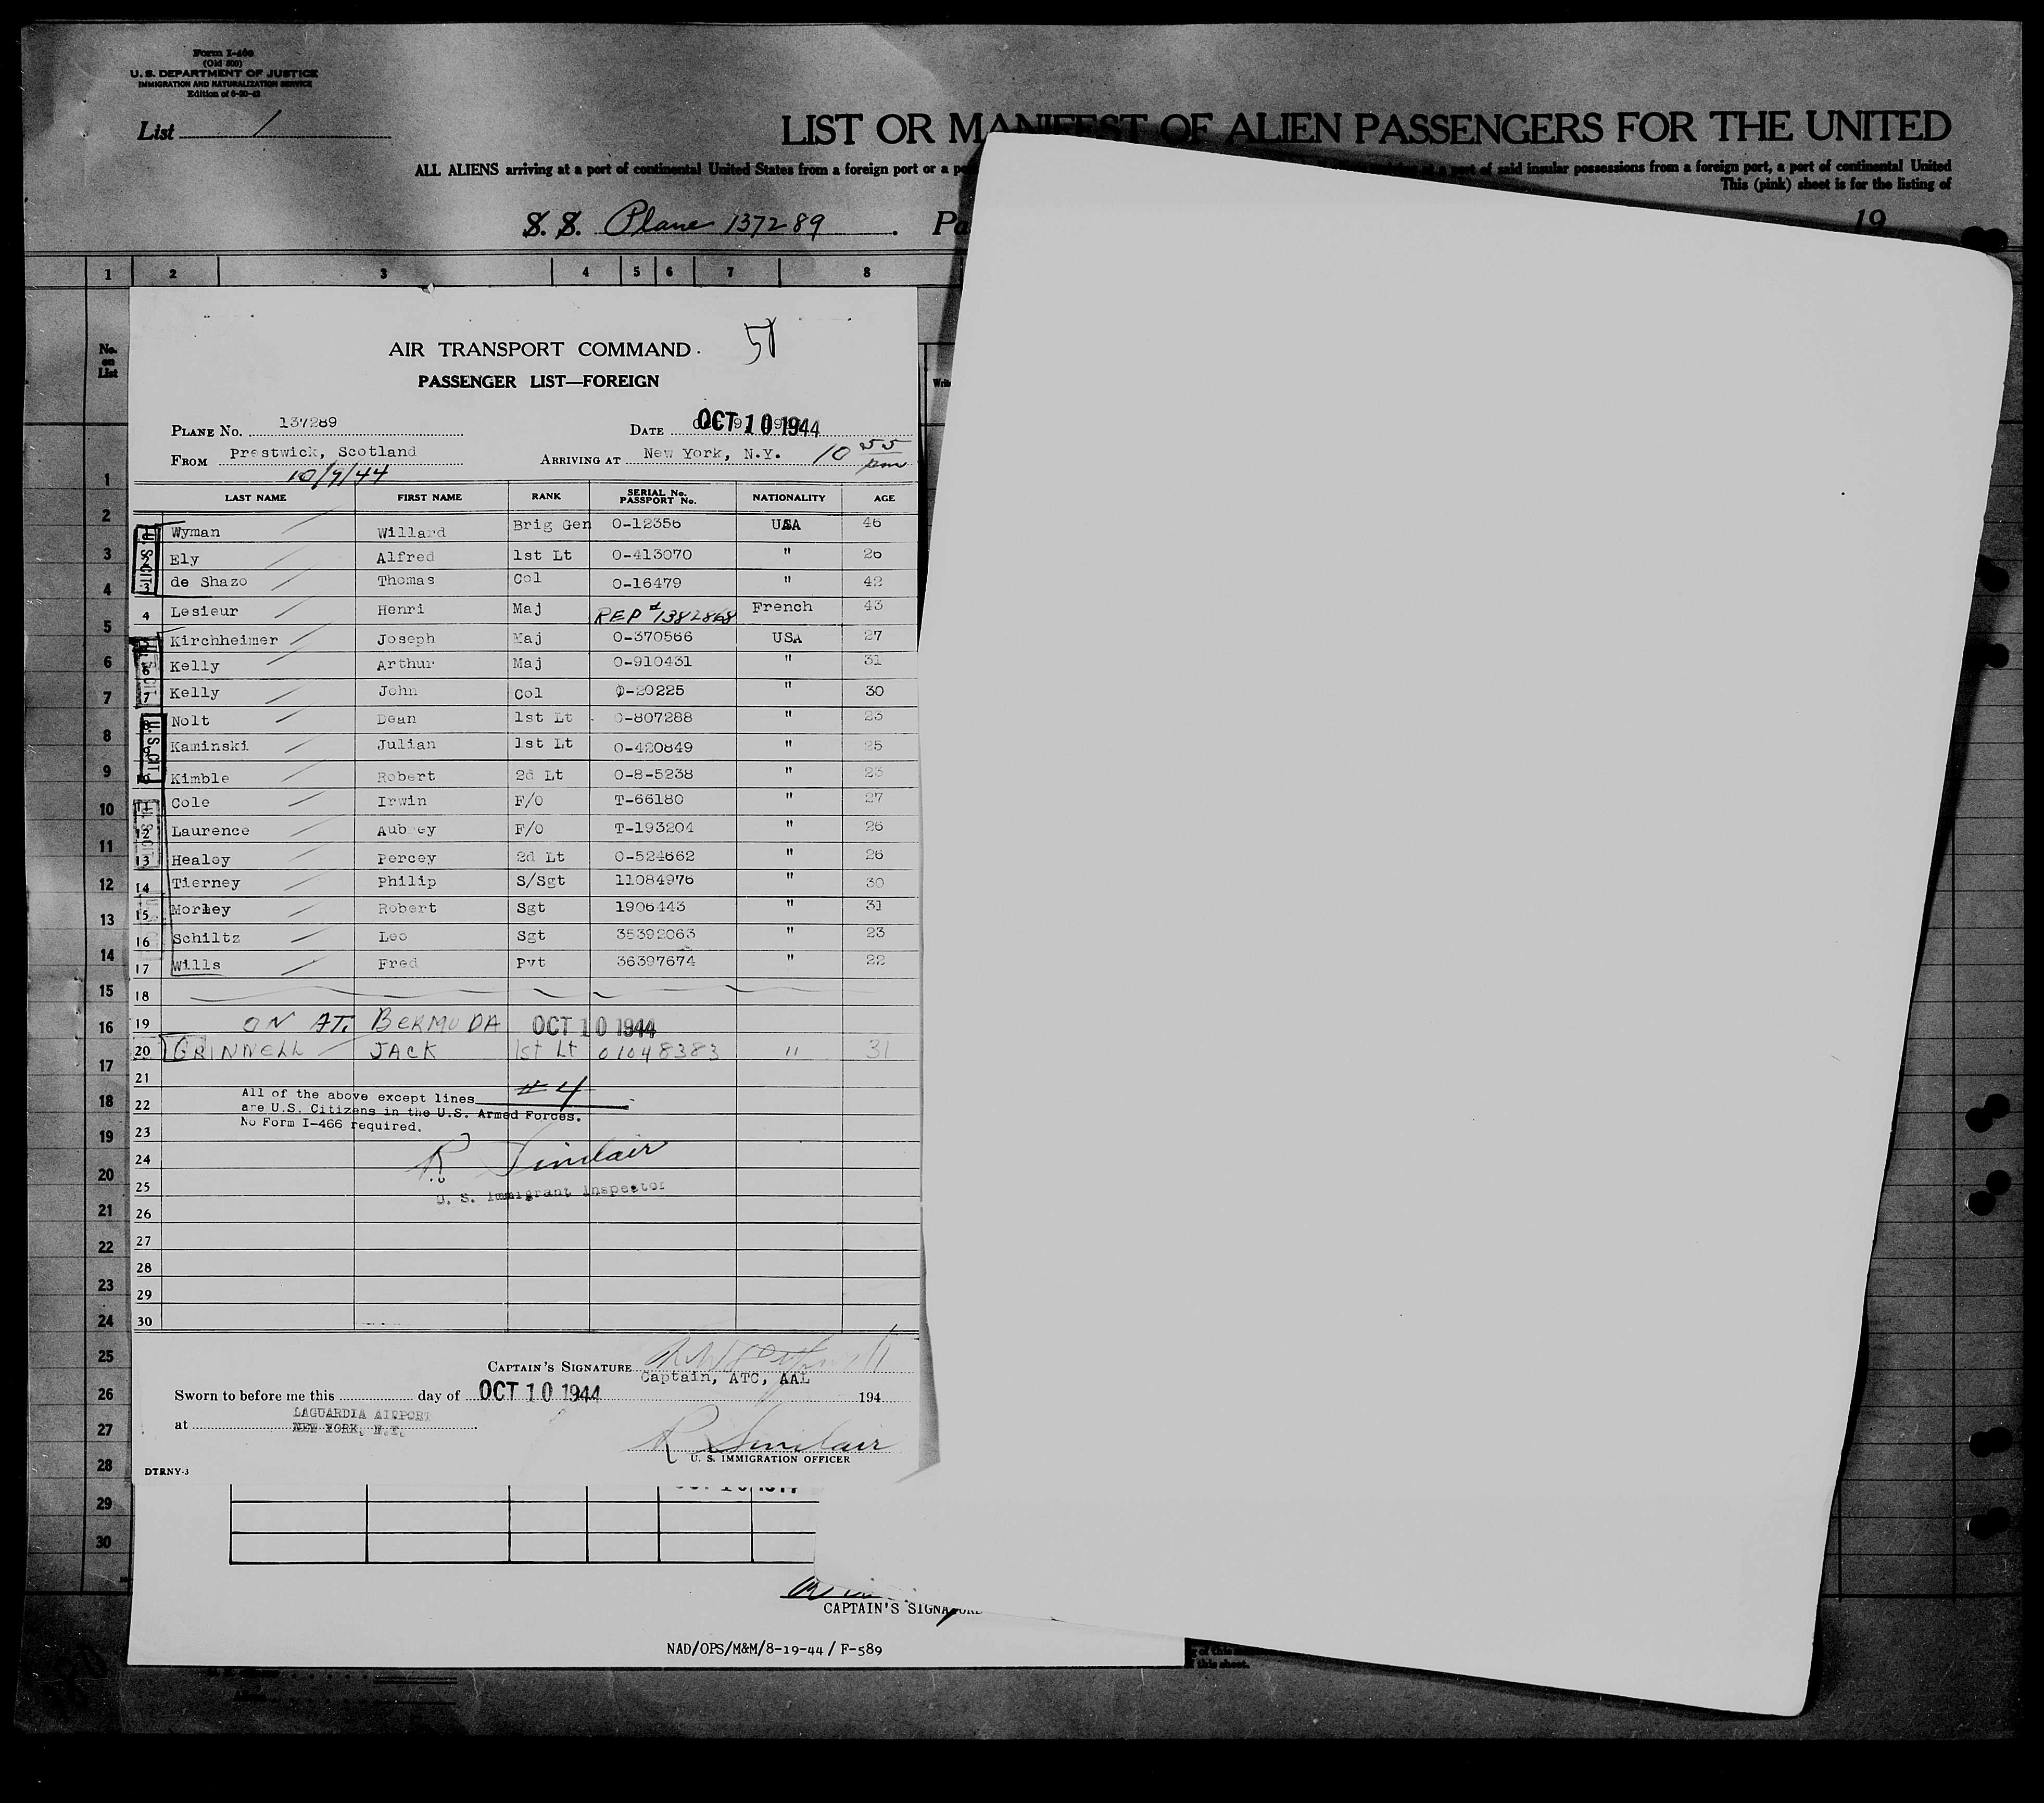 Form I-466
(Old 500)
U. S. DEPARTMENT OF JUSTICE
IMMIGRATION AND NATURALIZATION SERVICE
List 1
LIST OR MANIFEST OF ALIEN PASSENGERS FOR THE UNITED
ALL ALIENS arriving at a port of continental United States from a foreign port or a
port of said insular possessions from a foreign port, a port of continental United
This (pink) sheet is for the listing of
S. S. Plane 137289
19
1 2 3 4 5 6 7 8
No. on List
AIR TRANSPORT COMMAND
PASSENGER LIST—FOREIGN
PLANE No. 137289 DATE OCT 10 1944
FROM Prestwick, Scotland ARRIVING AT New York, N.Y. 10 55 pm
10/9/44
LAST NAME FIRST NAME RANK SERIAL No. PASSPORT No. NATIONALITY AGE
Wyman Willard Brig Gen O-12356 USA 46
Ely Alfred 1st Lt O-413070 " 26
3 de Shazo Thomas Col O-16479 " 42
4 Lesieur Henri Maj REP # 1382868 French 43
Kirchheimer Joseph Maj O-370566 USA 27
6 Kelly Arthur Maj O-910431 " 31
7 Kelly John Col O-20225 " 30
Nolt Dean 1st Lt O-807288 " 23
Kaminski Julian 1st Lt O-420849 " 25
Kimble Robert 2d Lt O-8-5238 " 23
11 Cole Irwin F/O T-66180 " 27
12 Laurence Aubrey F/O T-193204 " 26
13 Healey Percey 2d Lt O-524662 " 26
14 Tierney Philip S/Sgt 11084976 " 30
15 Morley Robert Sgt 1906443 " 31
16 Schiltz Leo Sgt 35392063 " 23
17 Wills Fred Pvt 36397674 " 22
18
19 ON AT. BERMUDA OCT 10 1944
20 GRINNELL JACK 1st Lt 01048383 " 31
21
All of the above except lines #4
22 are U.S. Citizens in the U.S. Armed Forces.
No Form I-466 required.
23
24 R Sinclair
25 U. S. Immigrant Inspector
26
27
28
29
30
CAPTAIN'S SIGNATURE
Captain, ATC, AAL
Sworn to before me this day of OCT 10 1944 194
at LAGUARDIA AIRPORT
NEW YORK, N.Y.
R Sinclair
U. S. IMMIGRATION OFFICER
DTRNY-3
CAPTAIN'S SIGNATURE
NAD/OPS/M&M/8-19-44 / F-589
this sheet.
1
2
3
4
5
6
7
8
9
10
11
12
13
14
15
16
17
18
19
20
21
22
23
24
25
26
27
28
29
30